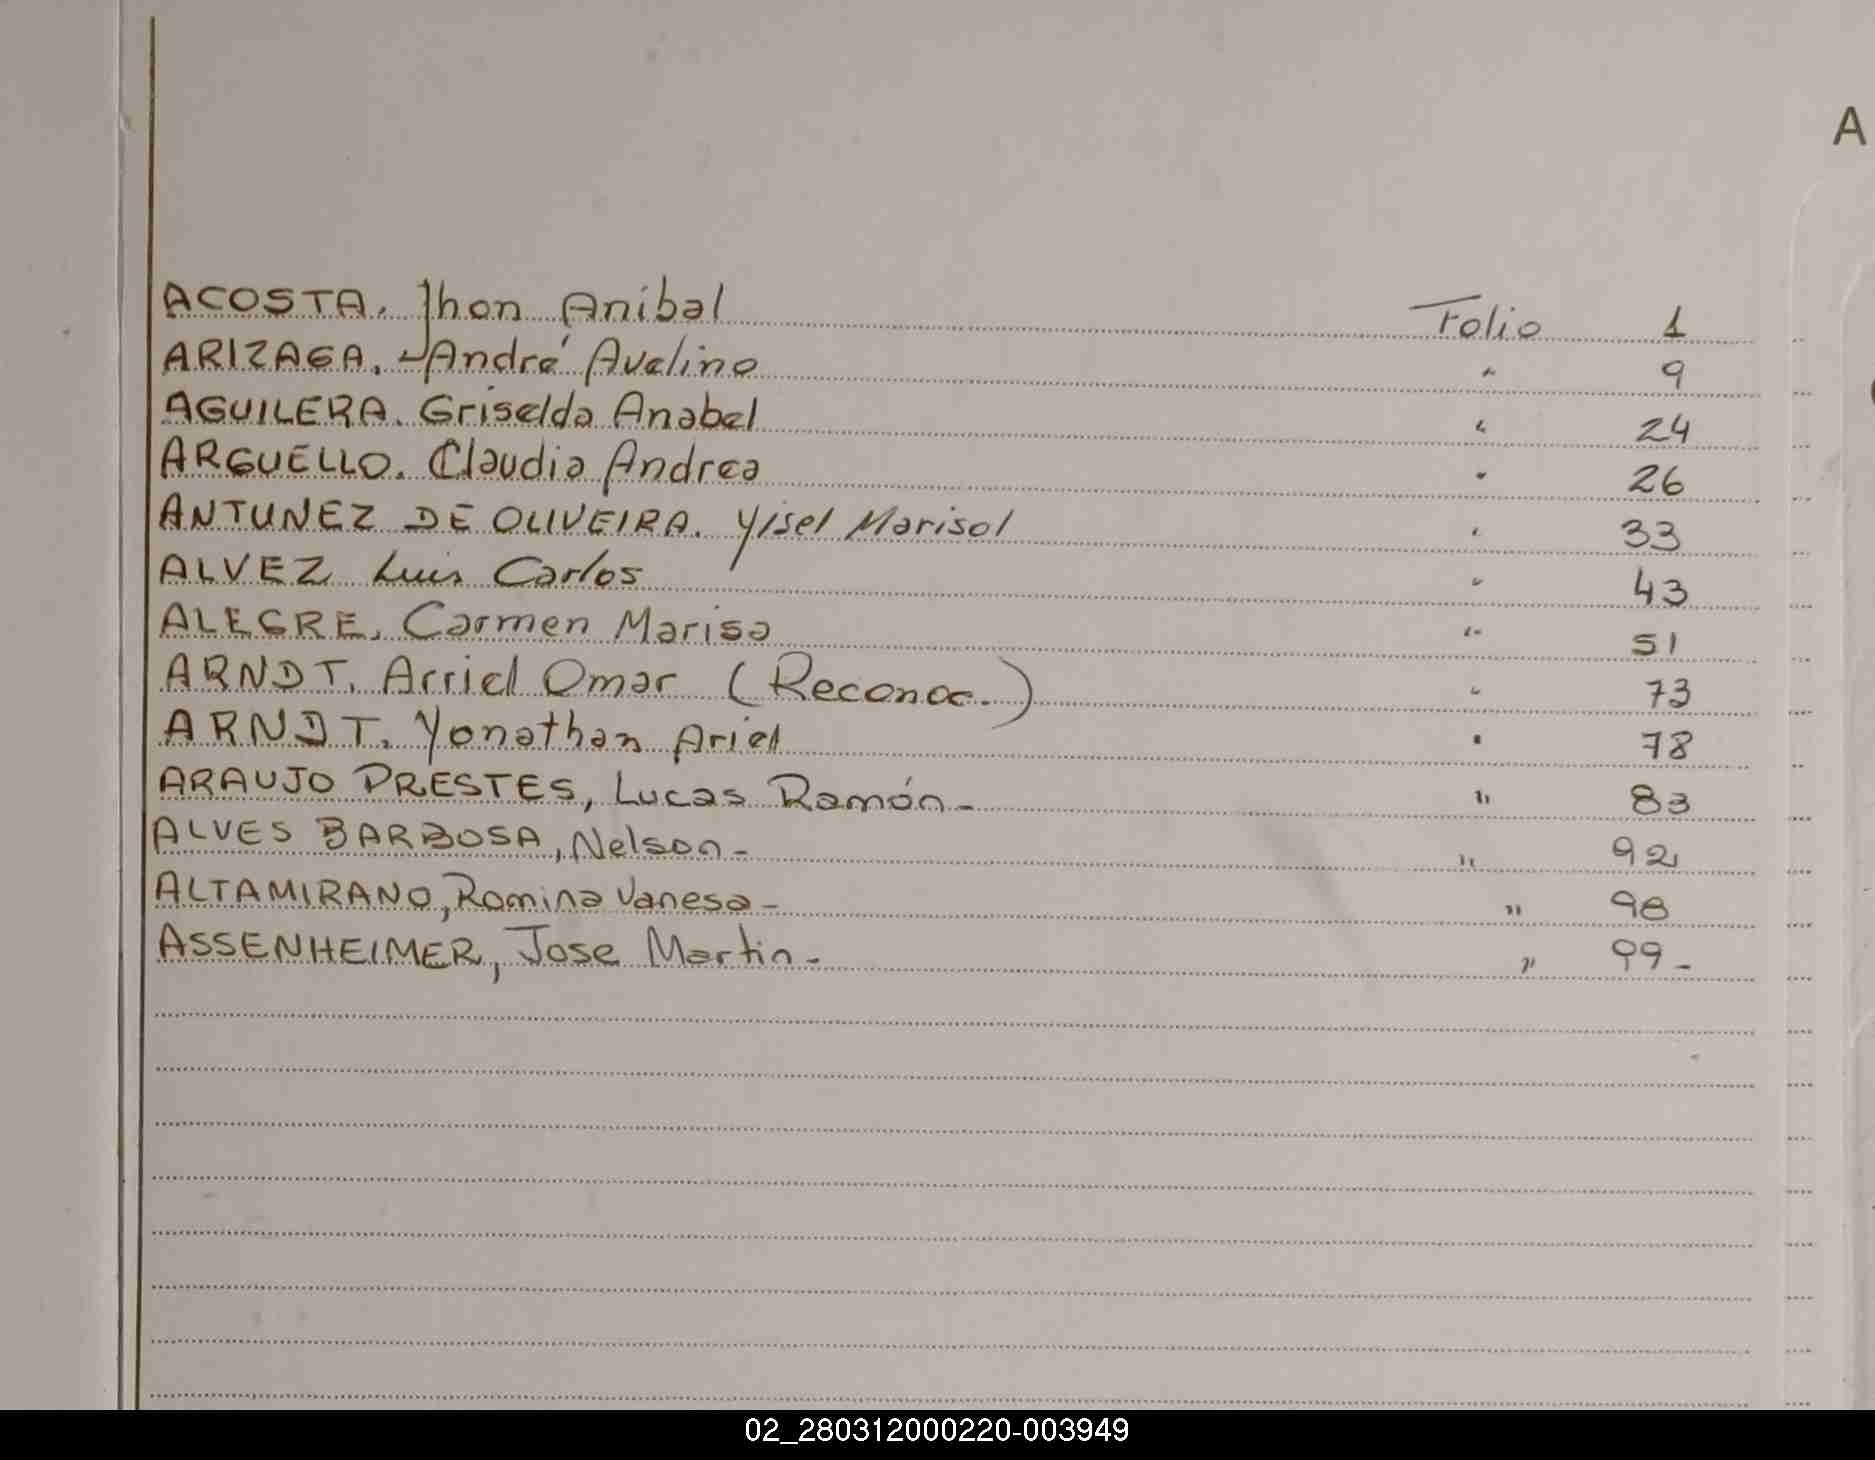 A
ACOSTA. Jhon Anibal Folio 1
ARIZAGA. André Avelino " 9
AGUILERA. Griselda Anabel " 24
ARGUELLO. Claudia Andrea " 26
ANTUNEZ DE OLIVEIRA. Yisel Marisol " 33
ALVEZ Luis Carlos " 43
ALEGRE, Carmen Marisa " 51
ARNDT. Arriel Omar (Reconoc.) " 73
ARNDT. Yonathan Ariel " 78
ARAUJO PRESTES, Lucas Ramón- " 83
ALVES BARBOSA, Nelson- " 92
ALTAMIRANO, Romina Vanesa- " 98
ASSENHEIMER, Jose Martin- " 99-
02_280312000220-003949